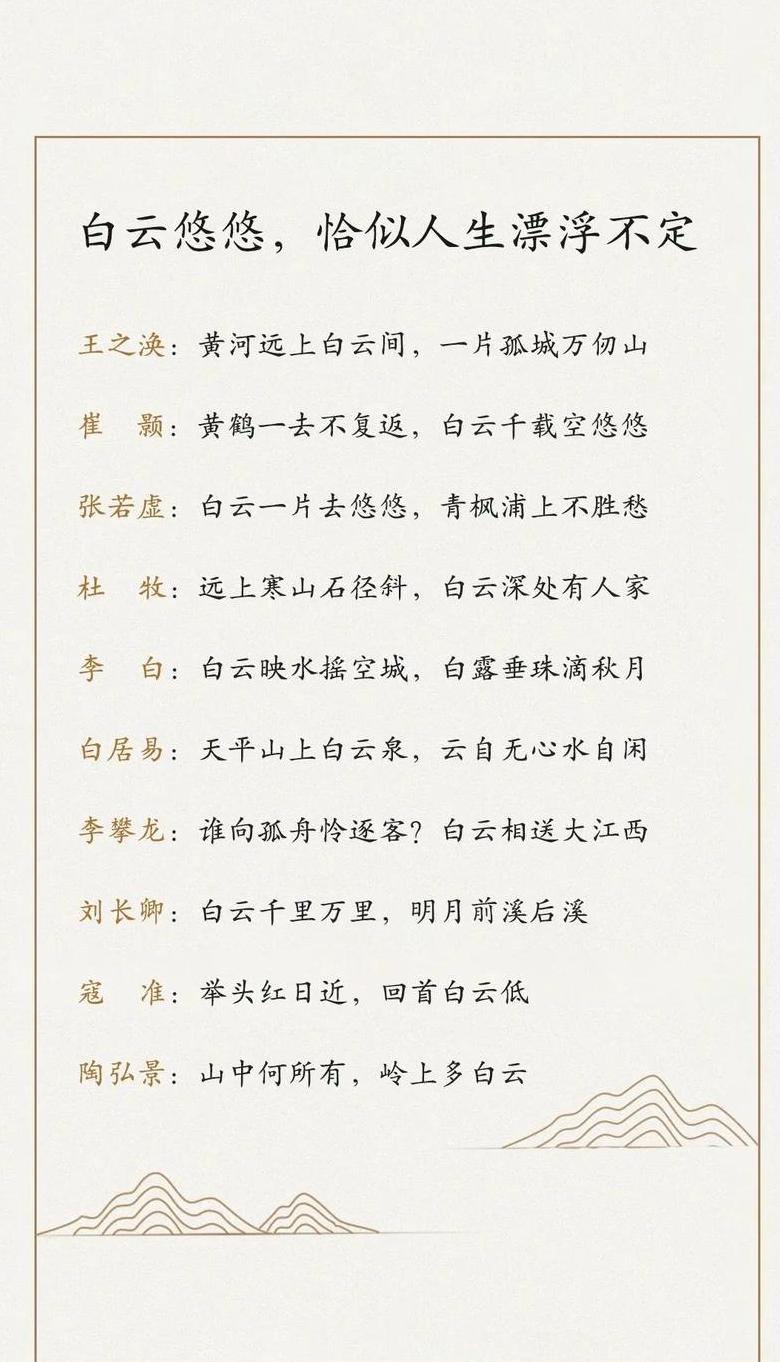 白云悠悠，恰似人生漂浮不定
王之涣：黄河远上白云间，一片孤城万仞山
崔　颢：黄鹤一去不复返，白云千载空悠悠
张若虚：白云一片去悠悠，青枫浦上不胜愁
杜　牧：远上寒山石径斜，白云深处有人家
李　白：白云映水摇空城，白露垂珠滴秋月
白居易：天平山上白云泉，云自无心水自闲
李攀龙：谁向孤舟怜逐客？白云相送大江西
刘长卿：白云千里万里，明月前溪后溪
寇　准：举头红日近，回首白云低
陶弘景：山中何所有，岭上多白云